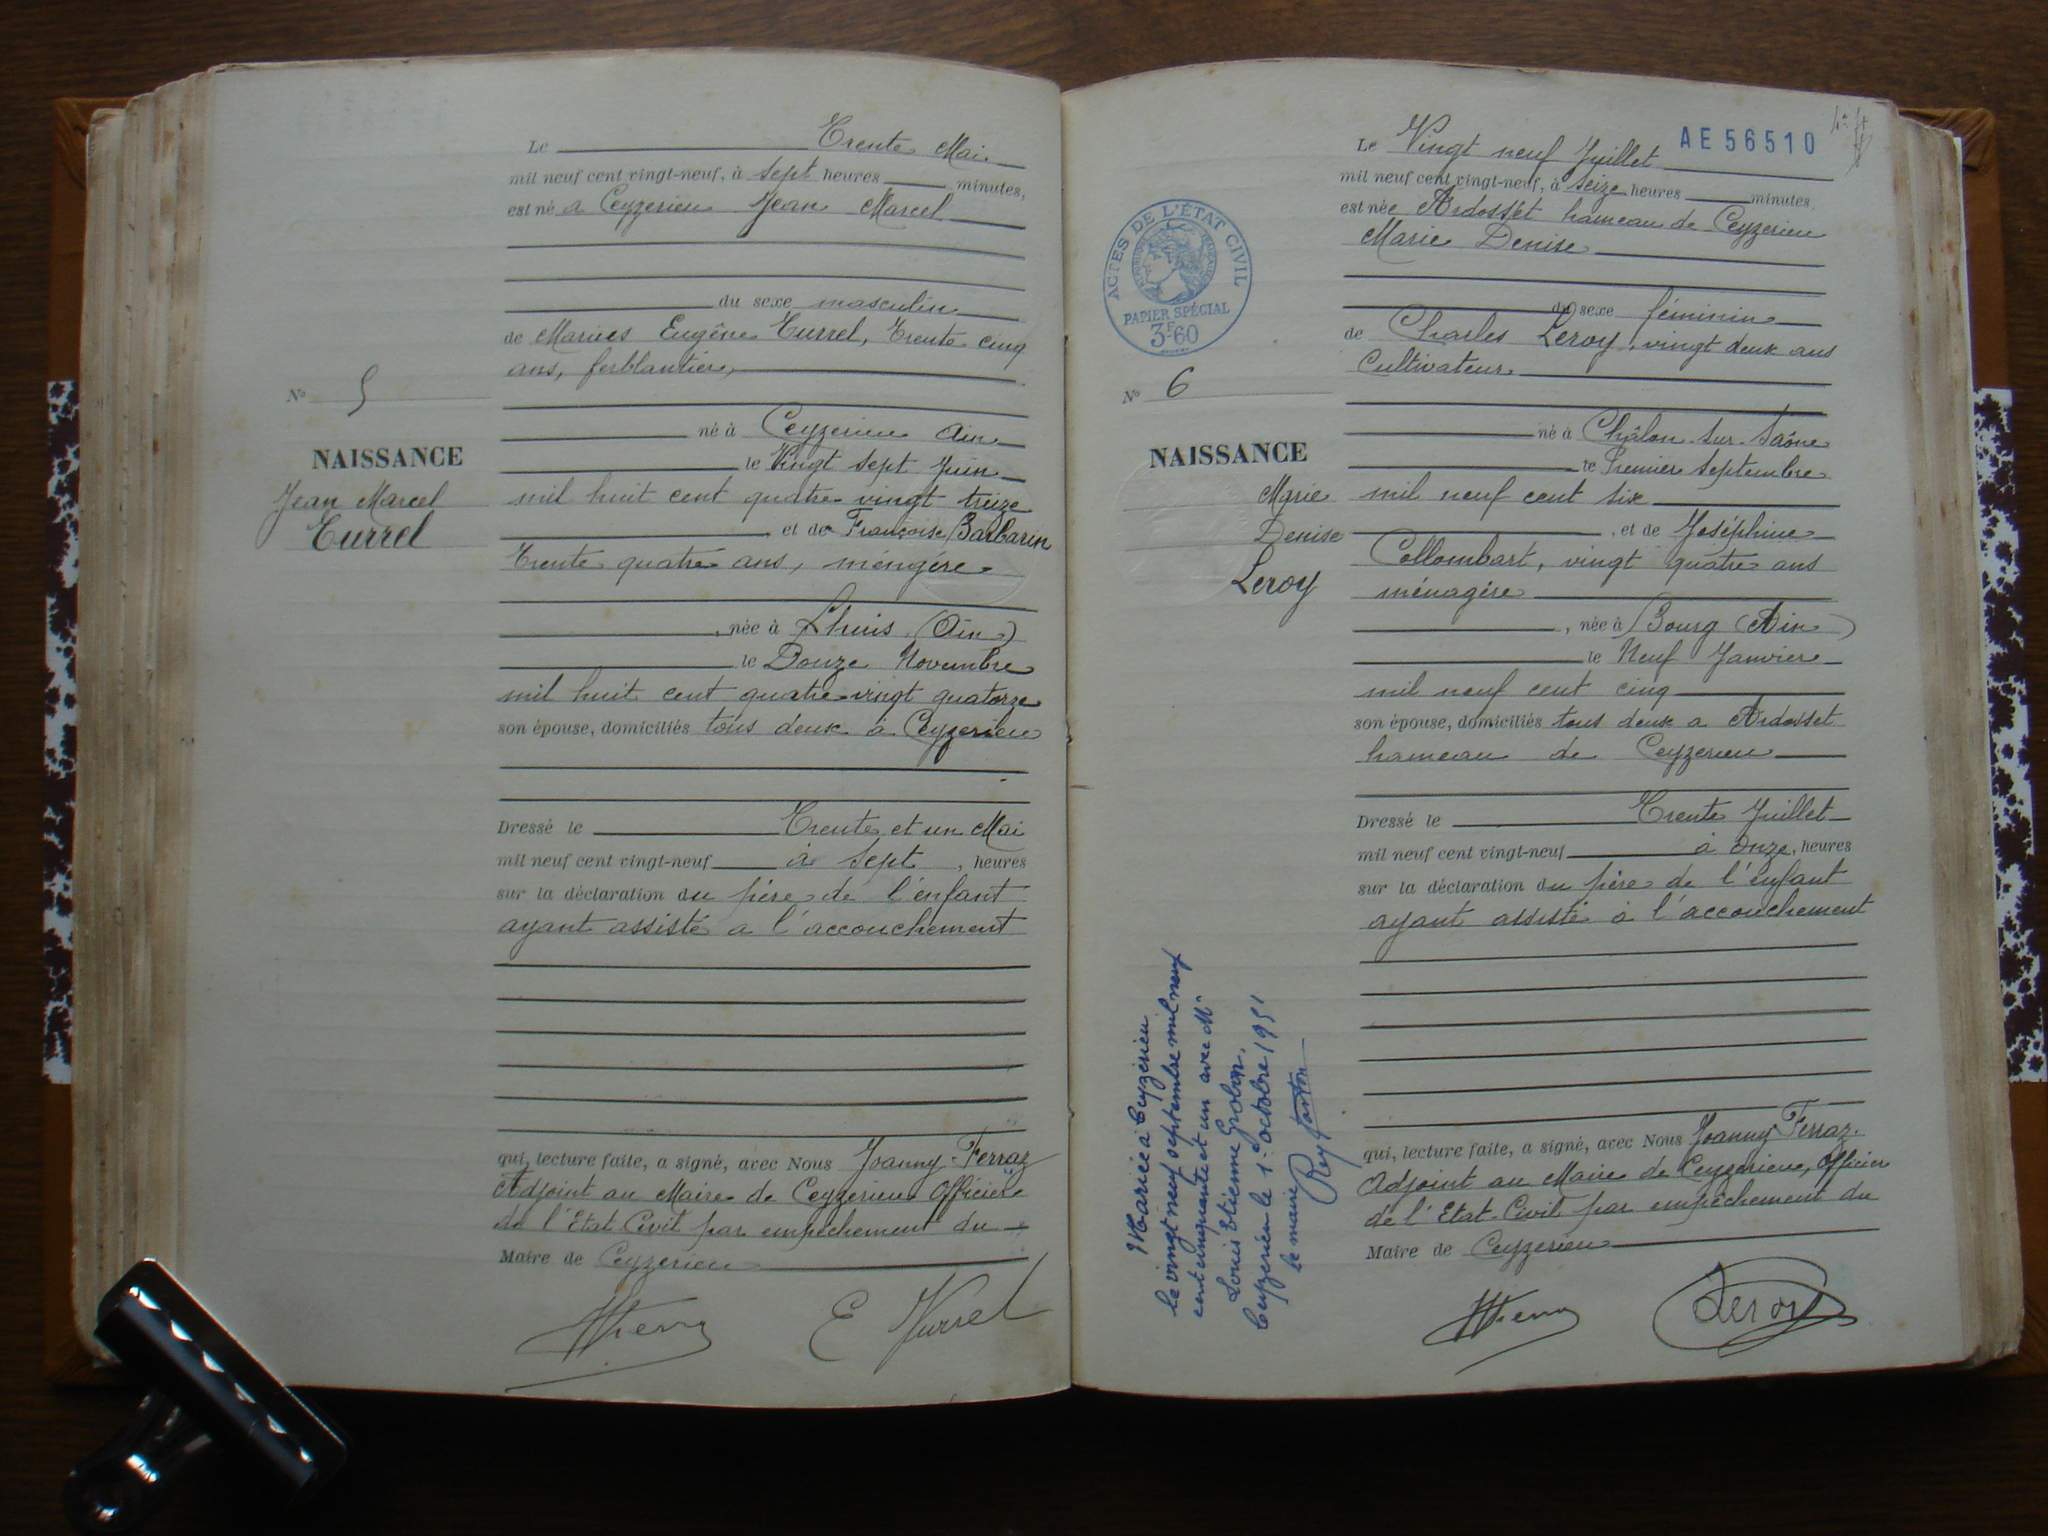 Le Trente Mai
mil neuf cent vingt-neuf, à sept heures minutes,
est né a Ceyzerieu Jean Marcel
du sexe masculin
de Marius Eugène Turrel, Trente cinq
ans, ferblantier,
né à Ceyzerieu Ain
le Vingt sept Juin
mil huit cent quatre vingt treize
et de Françoise Barbarin
Trente quatre ans, ménagère
, née à Lhuis (Ain)
le Douze Novembre
mil huit cent quatre vingt quatorze
son épouse, domiciliés tous deux à Ceyzerieu
Dressé le Trente et un Mai
mil neuf cent vingt-neuf à sept , heures
sur la déclaration du père de l'enfant
ayant assisté a l'accouchement
qui, lecture faite, a signé, avec Nous Joanny Ferraz
Adjoint au Maire de Ceyzerieu Officier
de l'Etat Civil par empêchement du
Maire de Ceyzerieu
E Turrel
No 5
NAISSANCE
Jean Marcel
Turrel
AE 56510
Le Vingt neuf Juillet
mil neuf cent vingt-neuf, à seize heures minutes
est née Ardosset hameau de Ceyzerieu
Marie Denise
du sexe féminin
de Charles Leroy, vingt deux ans
Cultivateur
né à Châlon-sur-Saône
le Premier septembre
mil neuf cent six
, et de Joséphine
Collombart, vingt quatre ans
ménagère
, née à Bourg (Ain)
le Neuf Janvier
mil neuf cent cinq
son épouse, domiciliés tous deux a Ardosset
hameau de Ceyzerieu
Dressé le Trente Juillet
mil neuf cent vingt-neuf à onze, heures
sur la déclaration du père de l'enfant
ayant assisté à l'accouchement
qui, lecture faite, a signé, avec Nous Joanny Ferraz
Adjoint au Maire de Ceyzerieu, Officier
de l'Etat-Civil par empêchement du
Maire de Ceyzerieu
Leroy
ACTES DE L'ÉTAT CIVIL
PAPIER SPÉCIAL
3F60
No 6
NAISSANCE
Marie
Denise
Leroy
Mariée à Ceyzérieu
le vingt neuf septembre mil neuf
cent cinquante et un avec Mr
Louis Etienne Grobon.
Ceyzérieu le 1er octobre 1951
le maire